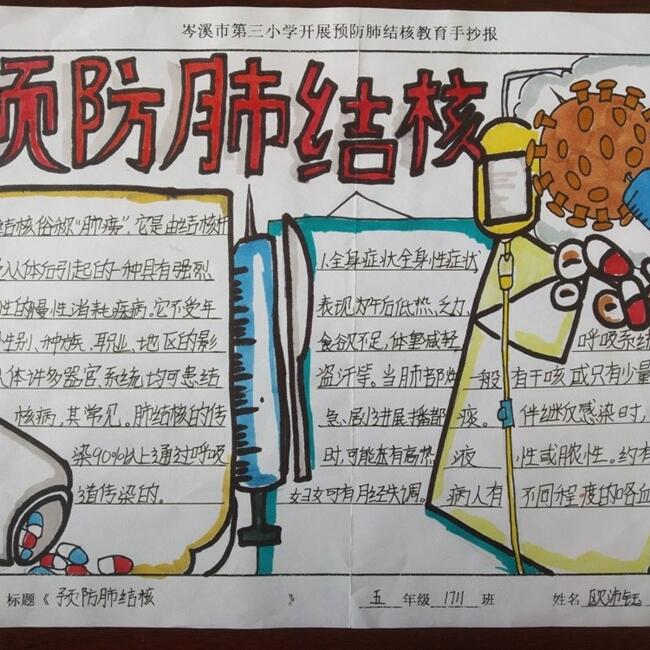 岑溪市第三小学开展预防肺结核教育手抄报
预防肺结核
结核俗称“肺痨”,它是由结核杆
人体后引起的一种具有强烈
性的慢性消耗疾病。它不受年
性别、种族、职业、地区的影
人体许多器官、系统均可患结
核病,其常见。肺结核的传
染90%以上通过呼吸
道传染的。
1.全身症状全身性症状
表现为午后低热,乏力,
食欲不足,体重减轻,
盗汗等。当肺部
急剧进展播
时,可能有高热
妇女可有月经失调。
呼吸系统
一般有干咳或只有少量
痰。伴继发感染时,
液性或脓性。约有
病人有不同程度的咯血
标题《预防肺结核》
五年级1711班
姓名 欧沛钰